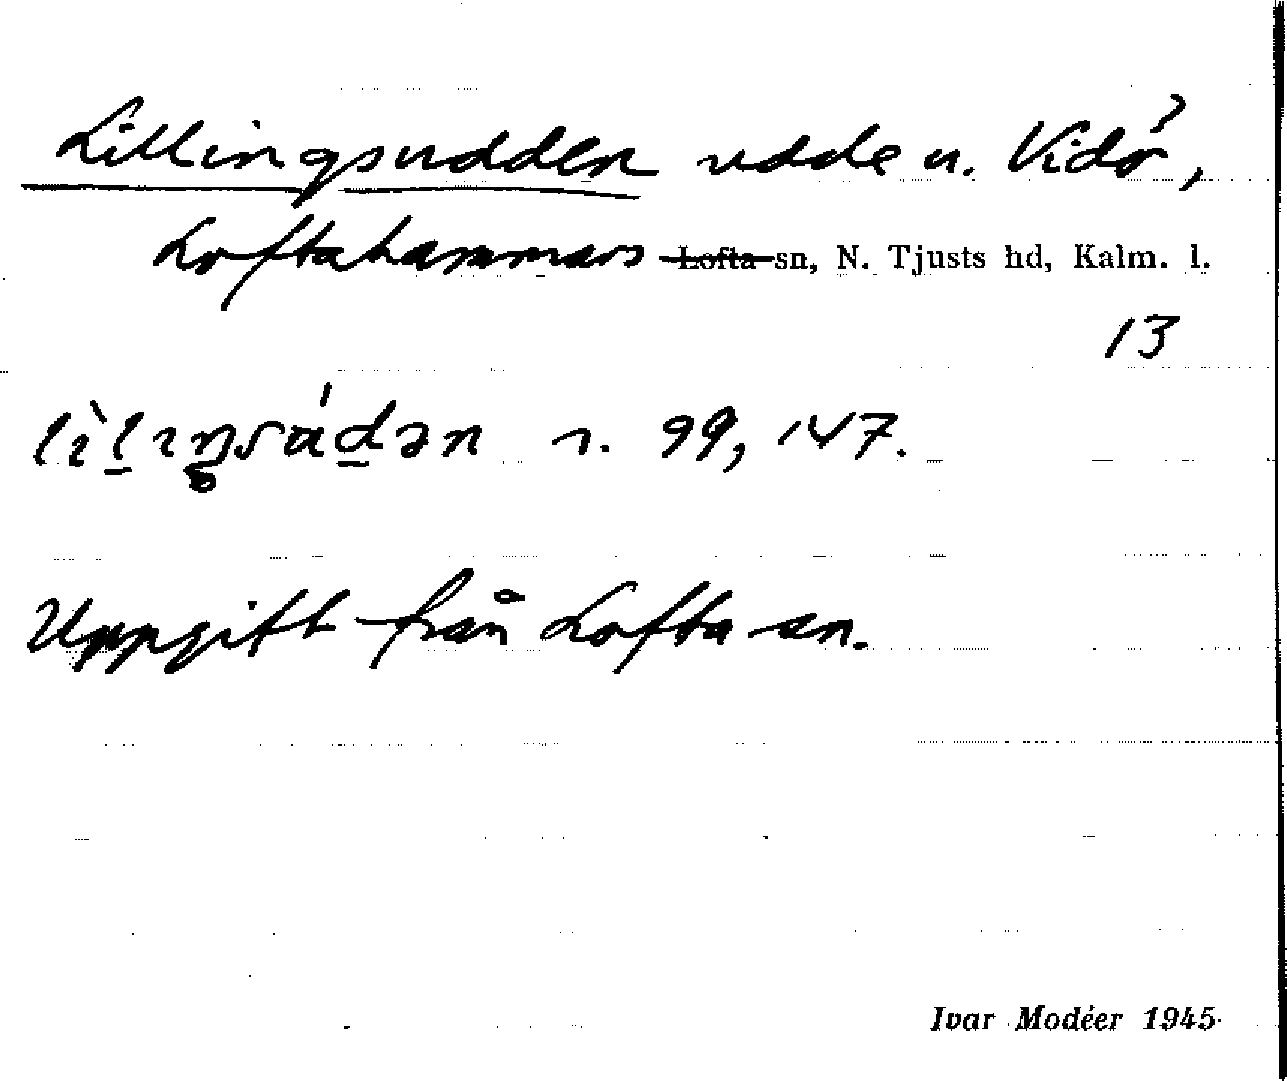 Lillingsudden udde u. Vidö,
Loftahammars Lofta sn, N. Tjusts hd, Kalm. l.
13
99, 147.
Uppgift från Lofta sn.
Ivar Modéer 1945